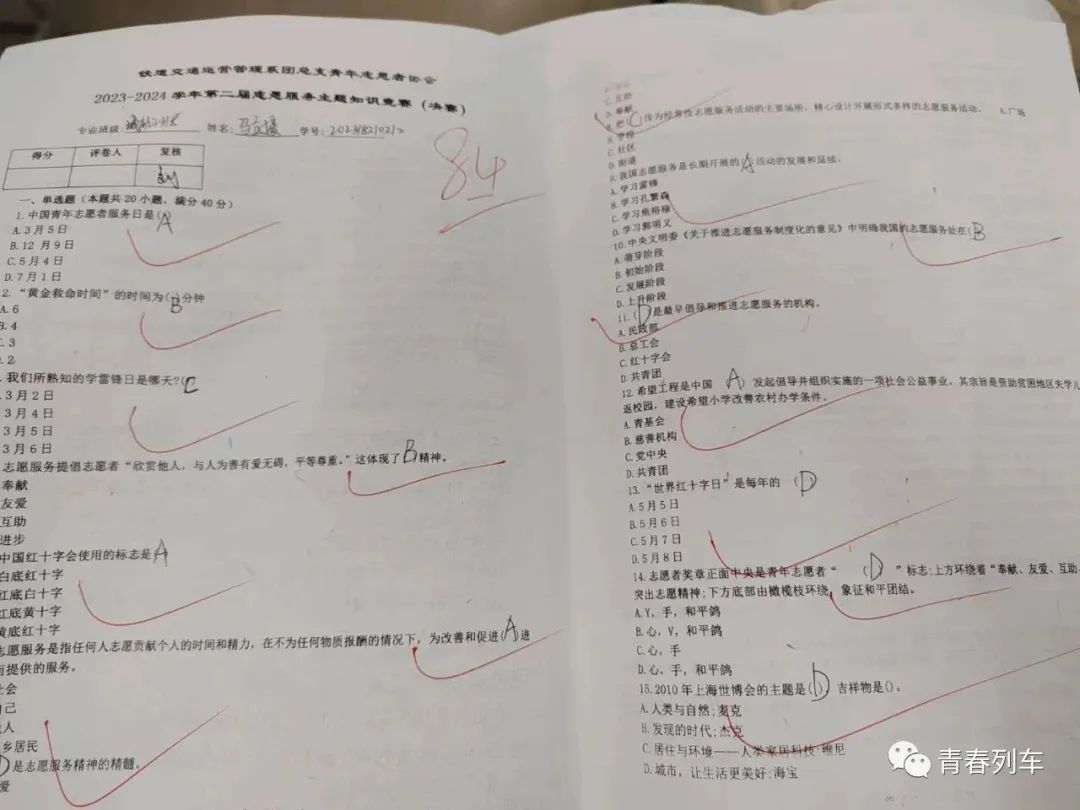 铁道交通运营管理系团总支青年志愿者协会
2023-2024学年第二届志愿服务主题知识竞赛（决赛）
专业班级: 姓名: 学号: 2023182102
得分 评卷人 复核
84
一、单选题（本题共20小题，满分40分）
1.中国青年志愿者服务日是(A
A.3月5日
B.12月9日
C.5月4日
D.7月1日
2.“黄金救命时间”的时间为(B)分钟
A.6
B.4
C.3
.2
.我们所熟知的学雷锋日是哪天?(C
.3月2日
3月4日
3月5日
3月6日
志愿服务提倡志愿者“欣赏他人，与人为善有爱无碍，平等尊重。”这体现了B精神。
奉献
友爱
互助
进步
中国红十字会使用的标志是A
白底红十字
红底白十字
红底黄十字
黄底红十字
志愿服务是指任何人志愿贡献个人的时间和精力，在不为任何物质报酬的情况下，为改善和促进(A)进
而提供的服务。
社会
自己
他人
乡居民
D)是志愿服务精神的精髓。
爱
C.互助
D.奉献
8.把(C)作为经常性志愿服务活动的主要场所，精心设计开展形式多样的志愿服务活动。 A.广场
B.学校
C.社区
D.街道
9.我国志愿服务是长期开展的A活动的发展和延续。
A.学习雷锋
B.学习孔繁森
C.学习焦裕禄
D.学习郭明义
10.中央文明委《关于推进志愿服务制度化的意见》中明确我国的志愿服务处在(B
A.萌芽阶段
B.初始阶段
C.发展阶段
D.上升阶段
11.(D)是最早倡导和推进志愿服务的机构。
A.民政部
B.总工会
C.红十字会
D.共青团
12.希望工程是中国 A)发起倡导并组织实施的一项社会公益事业，其宗旨是资助贫困地区失学儿
返校园，建设希望小学改善农村办学条件。
A.青基会
B.慈善机构
C.党中央
D.共青团
13.“世界红十字日”是每年的 (D)
A.5月5日
B.5月6日
C.5月7日
D.5月8日
14.志愿者奖章正面中央是青年志愿者“ (D) ”标志;上方环绕着“奉献、友爱、互助、
突出志愿精神;下方底部由橄榄枝环绕，象征和平团结。
A.Y，手，和平鸽
B.心，V，和平鸽
C.心，手
D.心，手，和平鸽
15.2010年上海世博会的主题是(D)吉祥物是()。
A.人类与自然;麦克
B.发现的时代;杰克
C.居住与环境——人类家居科技·维尼
D.城市，让生活更美好;海宝
青春列车